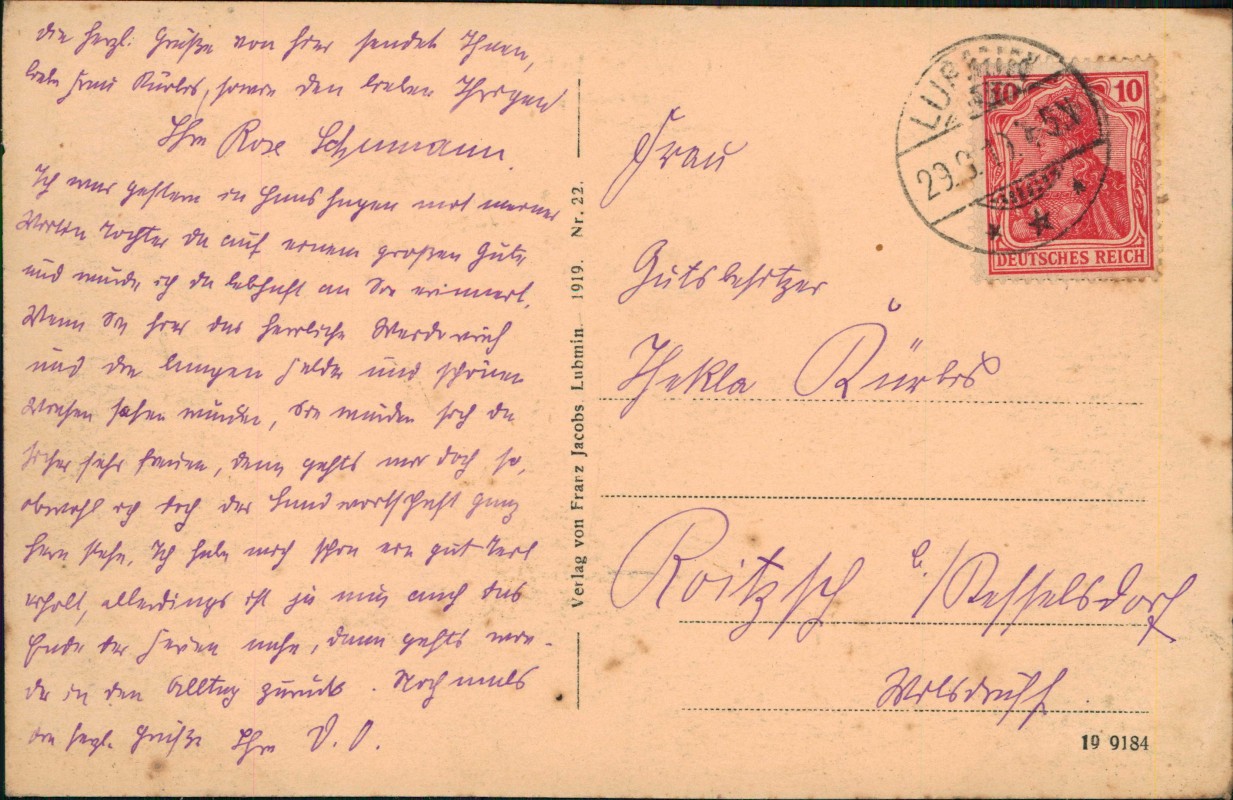 Die herzl. Grüße von hier sendet Ihnen,
liebe Frau Kürbis, sowie den lieben Ihrigen
Ihre Rose Schumann.
Ich war gestern in Hanshagen mit meiner
Wirtin Tochter da auf einem großen Gute
und wurde ich da lebhaft an Sie erinnert.
Wenn Sie hier das herrliche
und die langen Felder und schönen
Wiesen sehen würden, Sie würden sich da
sicher sehr freuen, denn gehts mir doch so,
obwohl ich doch der Landwirtschaft ganz
fern stehe. Ich habe mich schon ein gut Teil
erholt, allerdings ist ja nun auch das
Ende der Ferien nahe, dann gehts wie-
der in den Alltag zurück. Nochmals
die herzl. Grüße Ihre D. O.
Verlag von Franz Jacobs Lubmin 1919. Nr. 22.
LUBMIN
29.
10 10
DEUTSCHES REICH
Frau
Gutsbesitzer
Thekla Kürbis
Roitzsch b./Kesselsdorf
Wilsdruff
19 9184